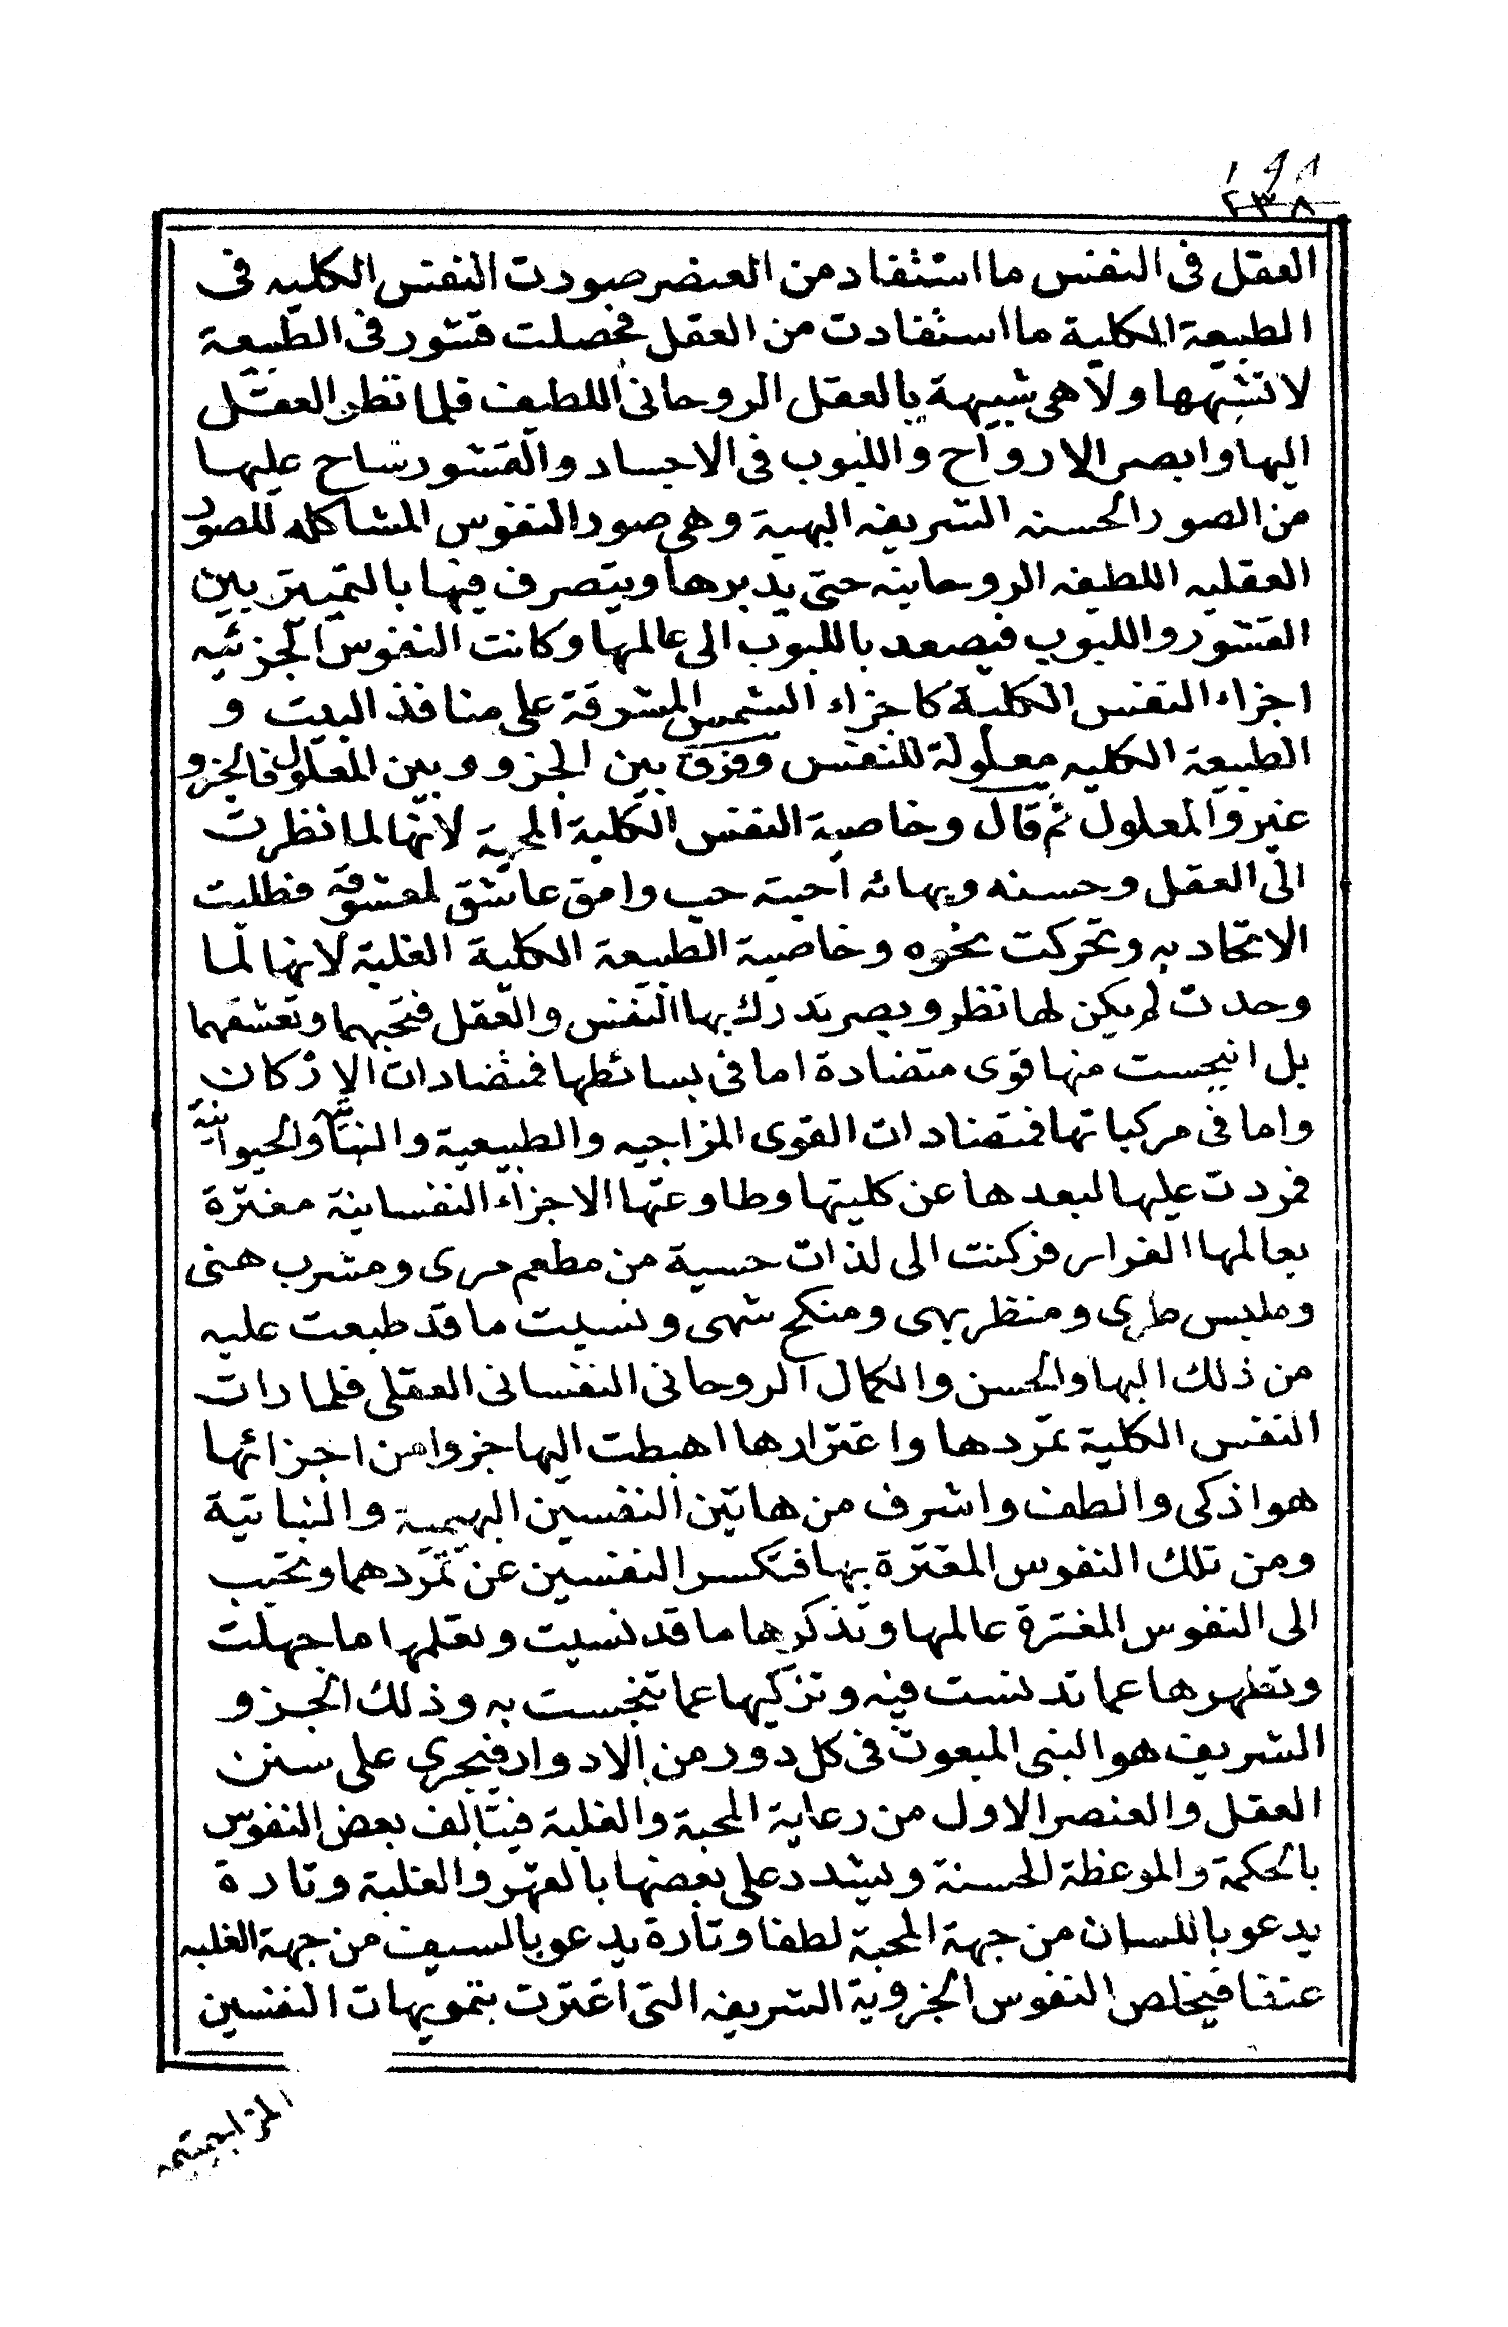 ١٩٨
٢٣٨
العقل فى النفس ما استفاد من العنصر صورت النفس الكليه فى
الطبيعة الكلية ما استفادت من العقل فحصلت قشور فى الطبيعة
لا تشبهها ولا هى شبيهة بالعقل الروحانى اللطيف فلما نظر العقل
اليها وابصر الارواح واللبوب فى الاجساد والقشور ساح عليها
من الصور الحسنه الشريفه البهية وهى صور النفوس المشاكله للصور
العقليه اللطيفه الروحانيه حتى يدبرها ويتصرف فيها بالتمييز بين
القشور واللبوب فيصعد باللبوب الى عالمها وكانت النفوس الجزئيه
اجزاء النفس الكلية كاجزاء الشمس المشرقة على منافذ البيت و
الطبيعة الكليه معلولة للنفس وفرق بين الجزو وبين المعلول فالجزو
غير والمعلول ثم قال وخاصية النفس الكلية المحبة لانها لما نظرت
الى العقل وحسنه وبهائه احبته حب وامق عاشق لمعشوقه فطلبت
الاتحاد به وتحركت نحوه وخاصية الطبيعة الكلية الغلبة لانها لما
وحدت لم يكن لها نظر وبصر تدرك بها النفس والعقل فتحبهما وتعشقهما
بل انبجست منها قوى متضادة اما فى بسائطها فمتضادات الاركان
واما فى مركباتها فمتضادات القوى المزاجيه والطبيعية والنباتية والحيوانية
فمردت عليها لبعدها عن كليتها وطاوعتها الاجزاء النفسانية مغترة
بعالمها الغرار فركنت الى لذات حسية من مطعم مرى ومشرب هنى
وملبس طرى ومنظر بهى ومنكح شهى ونسيت ما قد طبعت عليه
من ذلك البها والحسن والكمال الروحانى النفسانى العقلى فلما رات
النفس الكلية تمردها واغترارها اهبطت اليها جزوا من اجزائها
هو اذكى والطف واشرف من هاتين النفسين البهيمية والنباتية
ومن تلك النفوس المغترة بها فتكسر النفسين عن تمردهما وتحبب
الى النفوس المغترة عالمها وتذكرها ما قد نسيت وتعلمها ما جهلت
وتطهرها عما تدنست فيه وتزكيها عما تنجست به وذلك الجزو
الشريف هو النبى المبعوث فى كل دور من الادوار فيجرى على سنن
العقل والعنصر الاول من رعاية المحبة والغلبة فيتالف بعض النفوس
بالحكمة والموعظة الحسنة ويشدد على بعضها بالقهر والغلبة وتارة
يدعو باللسان من جهة المحبة لطفا وتارة يدعو بالسيف من جهة الغلبه
عنفا فيخلص النفوس الجزوية الشريفه التى اغترت بتمويهات النفسين